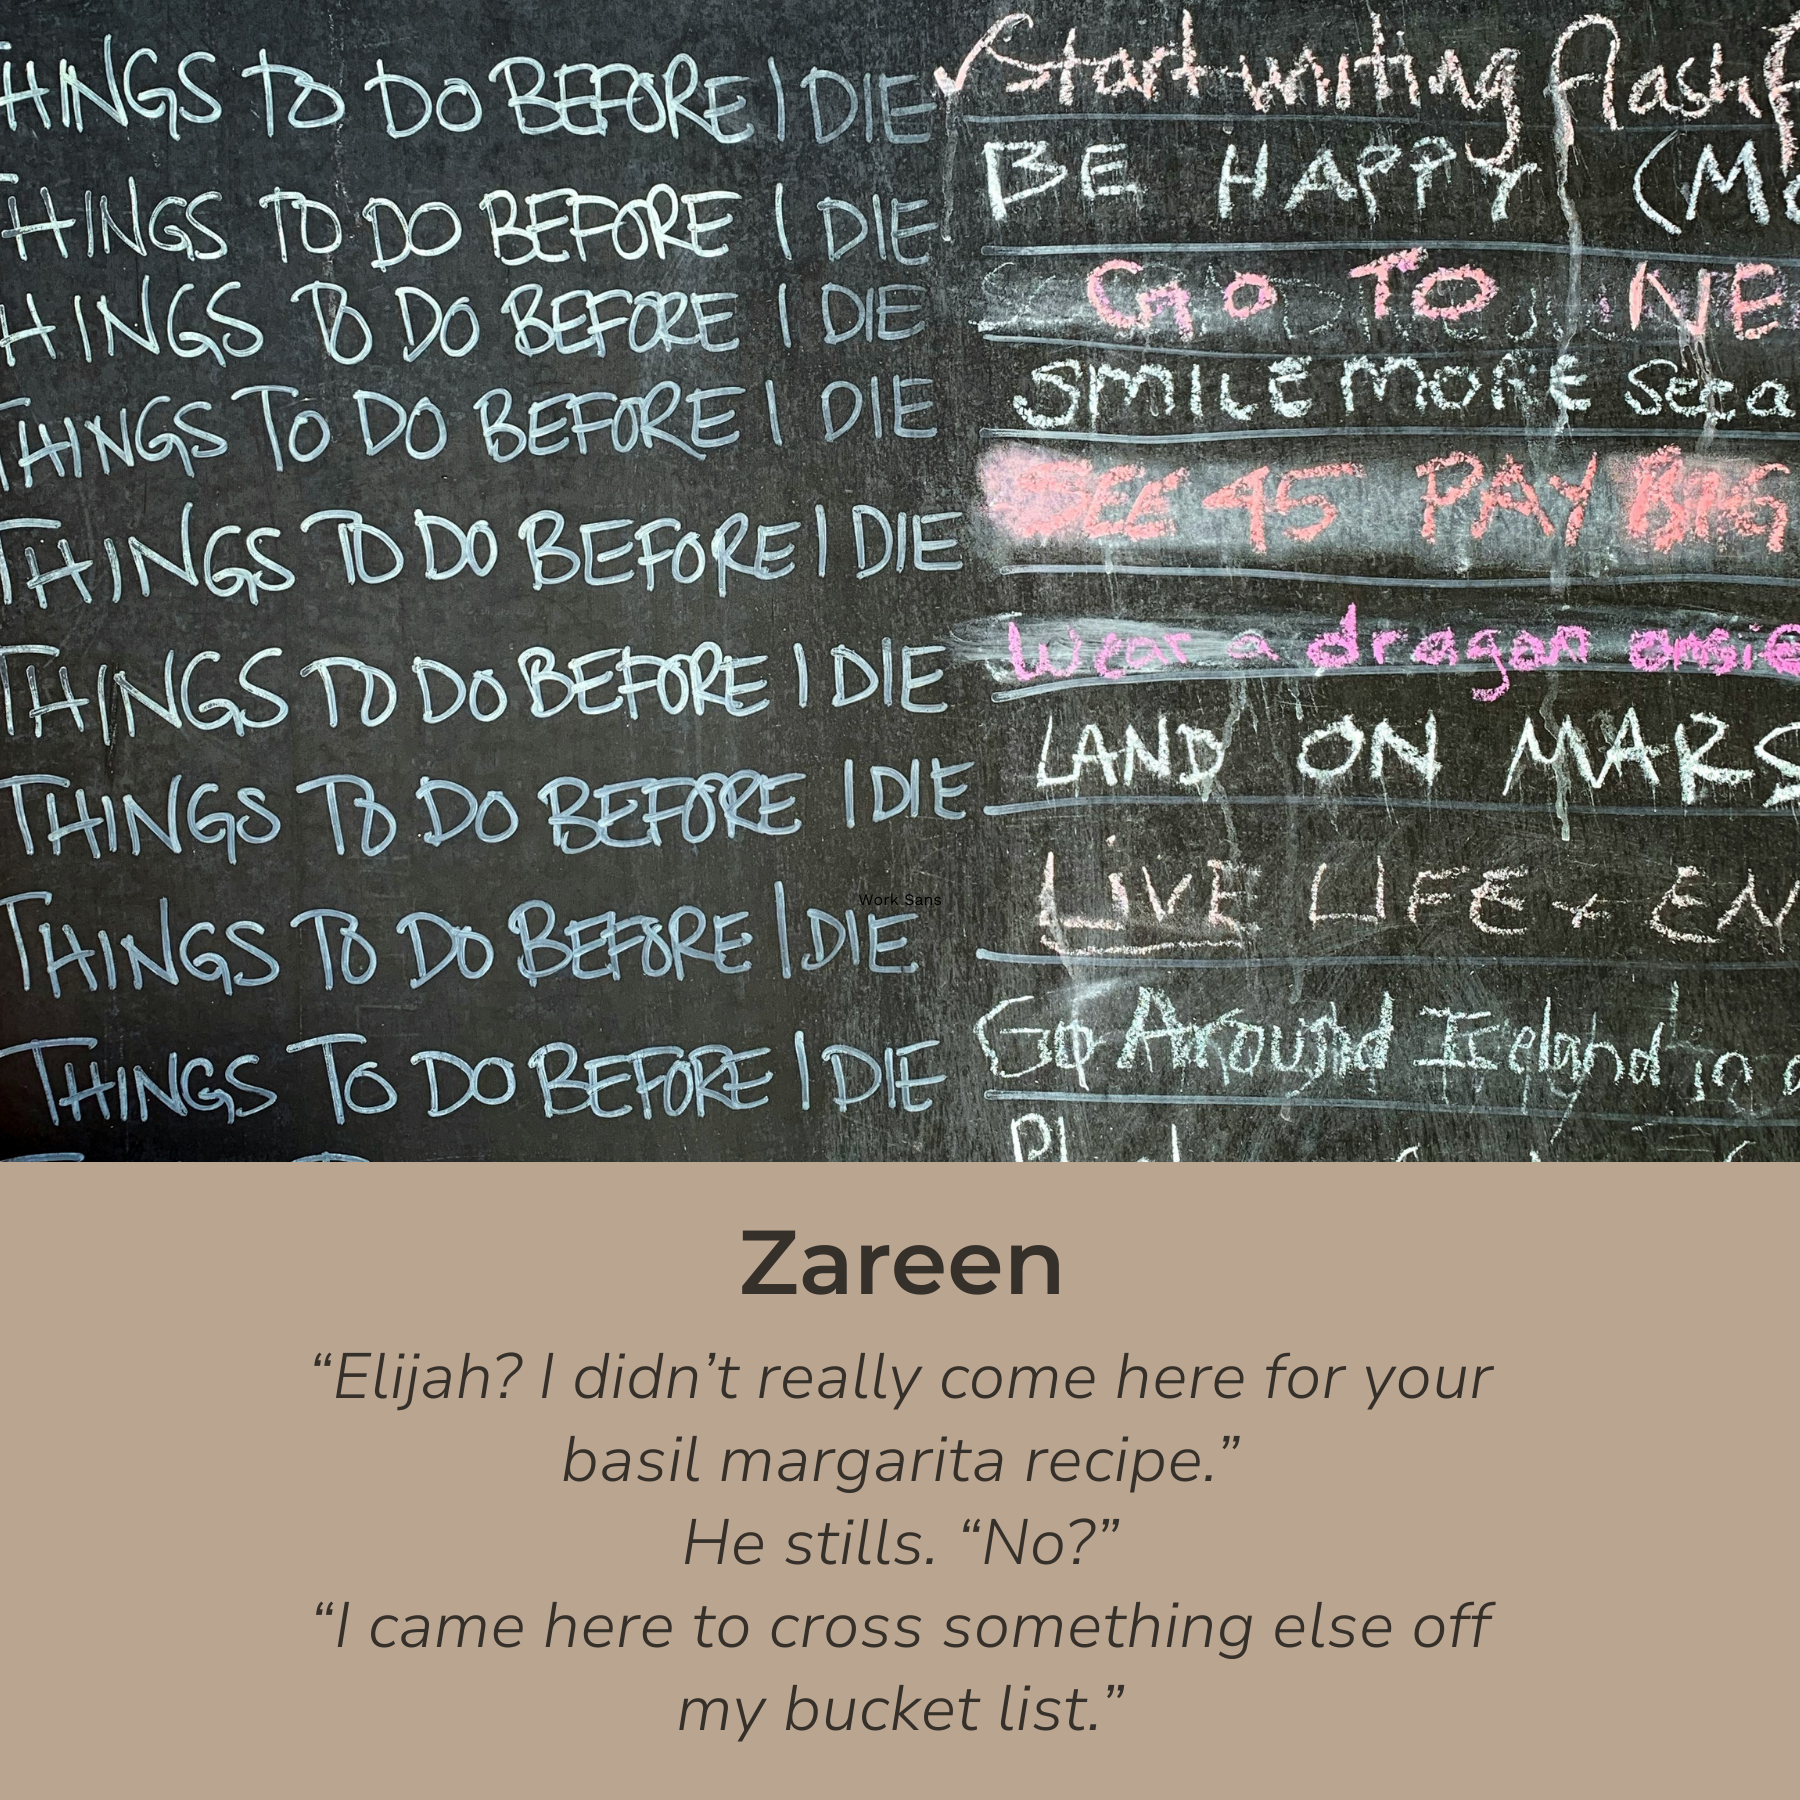 THINGS TO DO BEFORE I DIE ✓Start writing flash
THINGS TO DO BEFORE I DIE BE HAPPY
THINGS TO DO BEFORE I DIE GO TO
THINGS TO DO BEFORE I DIE SMILE MORE See a
THINGS TO DO BEFORE I DIE SEE 45 PAY
THINGS TO DO BEFORE I DIE Wear a dragon
THINGS TO DO BEFORE I DIE LAND ON MARS
Work Sans
THINGS TO DO BEFORE I DIE LiVE LIFE + EN
THINGS TO DO BEFORE I DIE Go Around Iceland in
Zareen
“Elijah? I didn’t really come here for your
basil margarita recipe.”
He stills. “No?”
“I came here to cross something else off
my bucket list.”